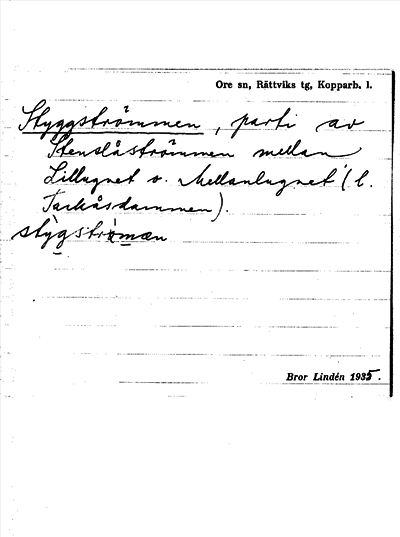 Ore sn, Rättviks tg, Kopparb. l.
Styggströmmen, parti av
Stenslåströmmen mellan
Lillugnet o. Mellanlugnet (l.
Tackåsdammen).
stỳgströ̀mæn
Bror Lindén 1935.